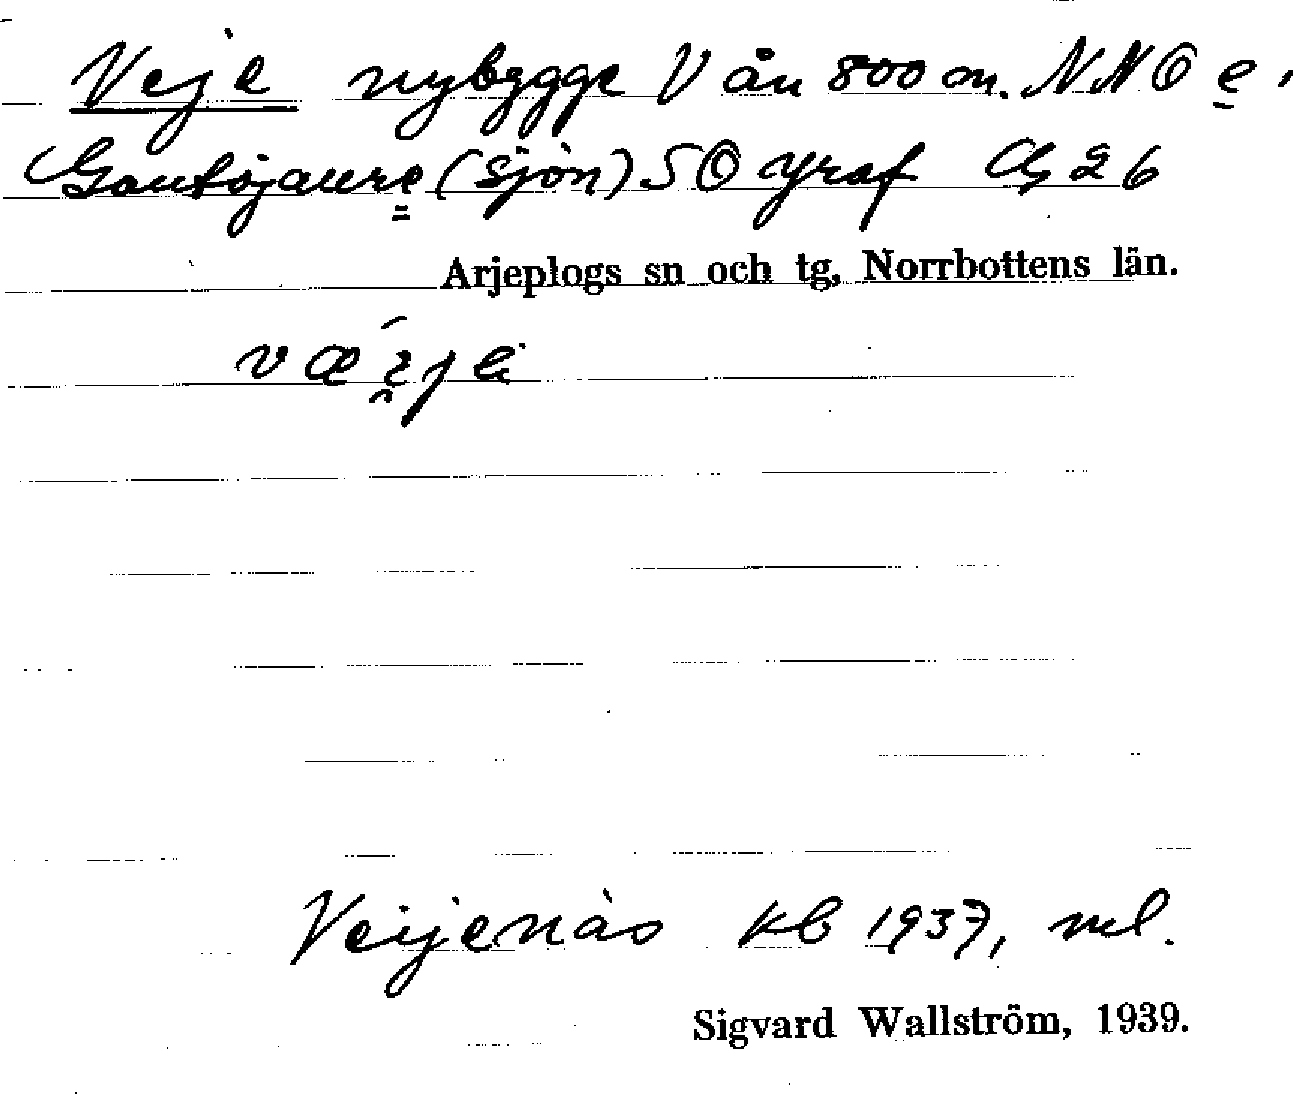 Veje nybygge V ån 800 m. NNO e.
Gautojaure (sjön) SO graf 26
Arjeplogs sn och tg, Norrbottens län.
Veijenäs kb 1937, ml.
Sigvard Wallström, 1939.